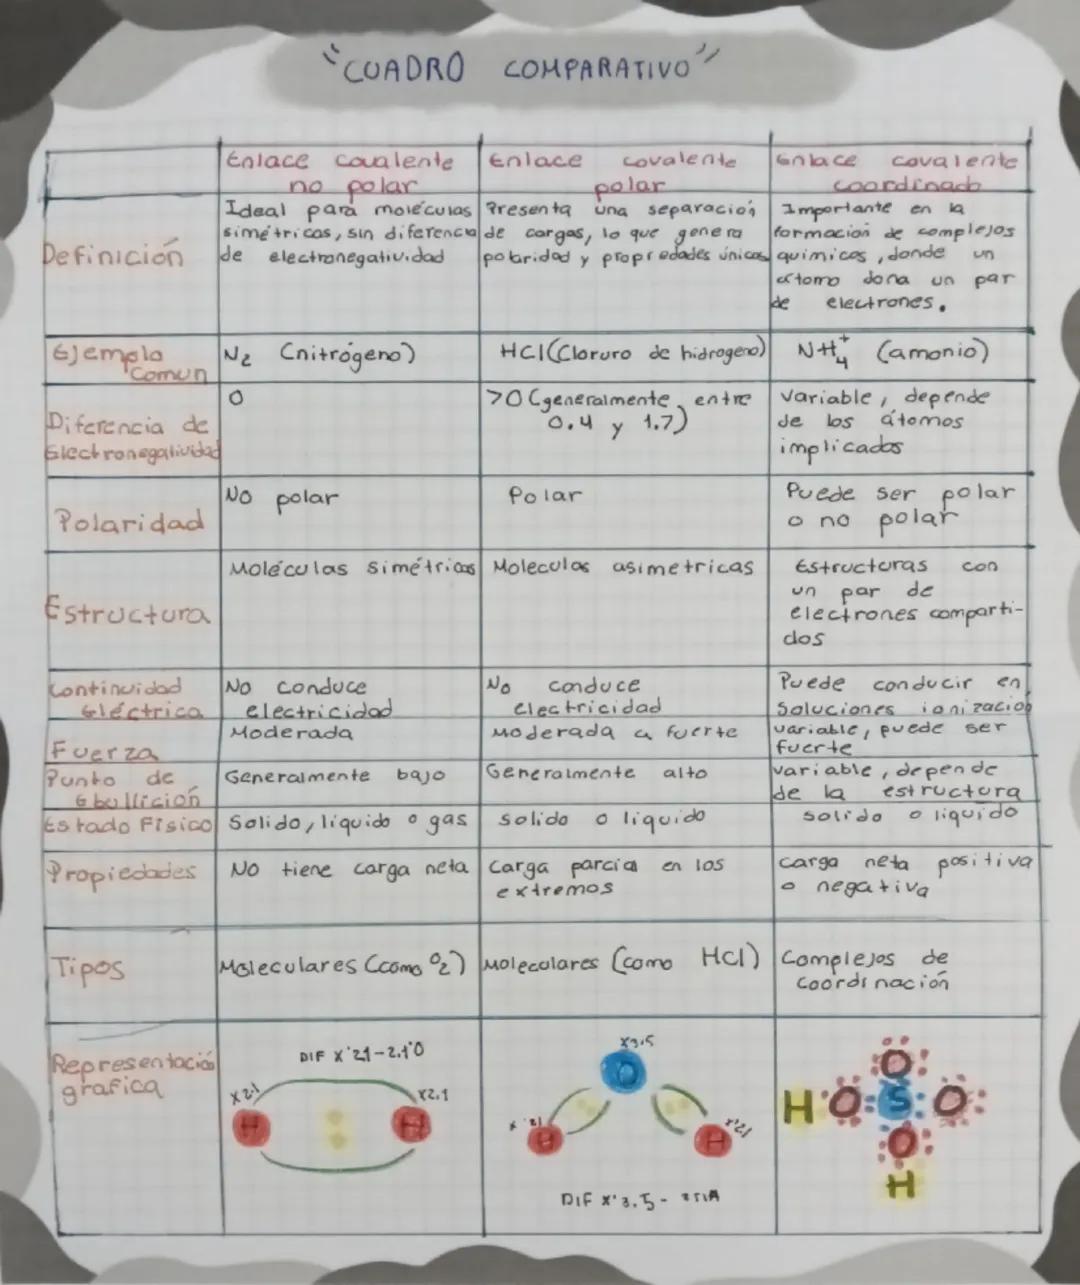 "CUADRO COMPARATIVO"
Enlace covalente
no polar
Enlace covalente
polar
Enlace covalente
coordinado
Definición
Ideal para moléculas
simétricas, sin diferencia
de electronegatividad
Presenta una separación
de cargas, lo que genera
polaridad y propiedades únicas
Importante en la
formación de complejos
quimicos, donde un
átomo dona un par
de electrones.
Ejemplo
Comun
N2 (nitrógeno)
HCl (Cloruro de hidrogeno)
NH4+ (amonio)
Diferencia de
Electronegatividad
0
>0 (generalmente entre
0.4 y 1.7)
Variable, depende
de los átomos
implicados
Polaridad
No polar
Polar
Puede ser polar
o no polar
Estructura
Moléculas simétricas
Moleculas asimetricas
Estructuras con
un par de
electrones comparti-
dos
Continuidad
Eléctrica
No conduce
electricidad
No conduce
electricidad
Puede conducir en
soluciones ionizacion
Fuerza
Moderada
Moderada a fuerte
variable, puede ser
fuerte
Punto de
Ebullición
Generalmente bajo
Generalmente alto
variable, depende
de la estructura
Estado Físico
Solido, líquido o gas
solido o liquido
solido o liquido
Propiedades
No tiene carga neta
Carga parcial en los
extremos
carga neta positiva
o negativa
Tipos
Moleculares (como O2)
Moleculares (como HCl)
Complejos de
Coordinación
Representació
grafica
DIF X'2.1-2.1'0
X2.1
X2.1
H
H
X3.5
O
X'2.1
H
H
DIF X'3.5-
O
H O S O
O
H